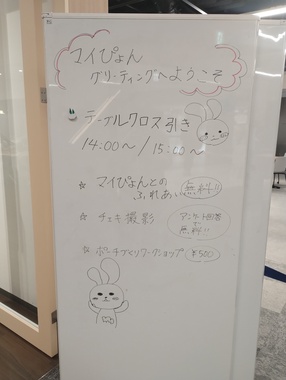 マイぴょん
グリーティングへようこそ
テーブルクロス引き
14:00～/15:00～
☆ マイぴょんとの
ふれあい 無料!!
☆ チェキ撮影 アンケート回答で
無料!!
☆ ポーチづくりワークショップ ¥500